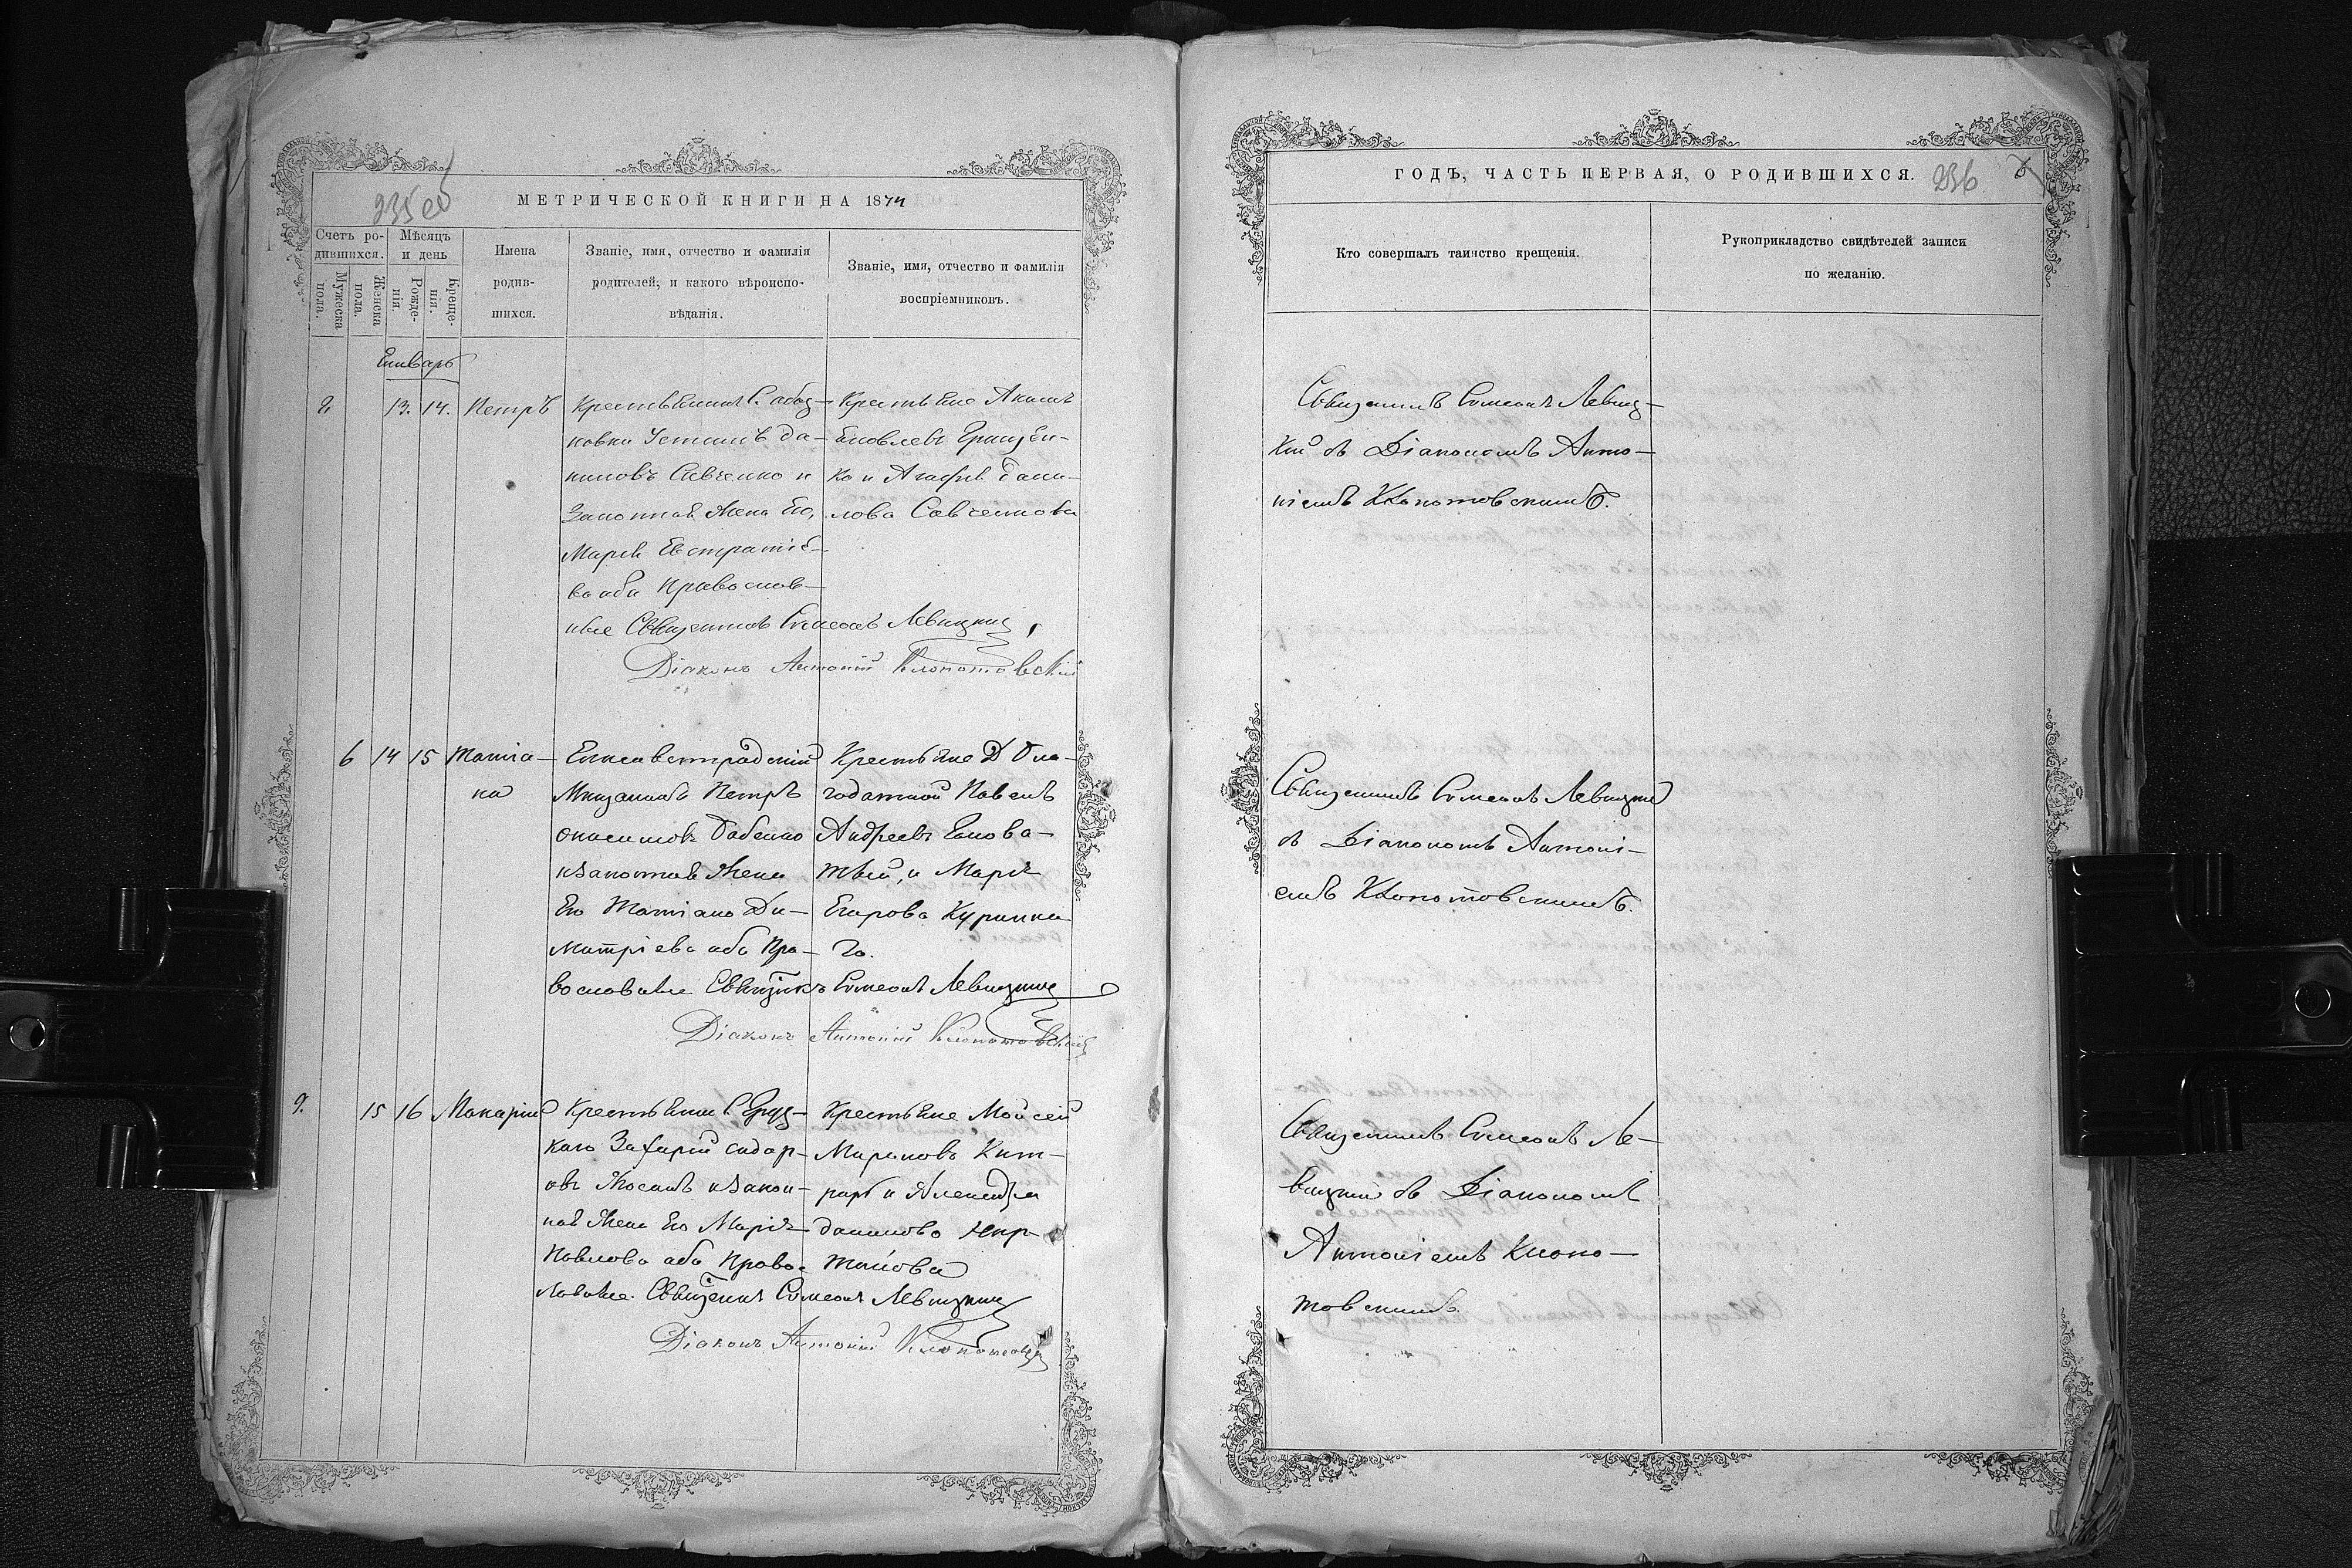 235 об
МЕТРИЧЕСКОЙ КНИГИ НА 1874
Счетъ ро-
дившихся.
Мужеска
пола.
Женска
пола.
Мѣсяцъ
и день
Рожде-
нія.
Креще-
нія.
Имена
родив-
шихся.
Званіе, имя, отчество и фамилія
родителей, и какого вѣроиспо-
вѣданія.
Званіе, имя, отчество и фамилія
воспріемниковъ.
Январь
13. 14. Петръ
ковки Устимъ Да-
ниловъ Савченко и
Законная Жена Его,
Марія Евстратіе-
ва оба Православ-
ные Священникъ Симеонъ Левицкий
Діаконъ Антоній Клопотовскій
Крестьяне Акимъ
Яковлевъ Грицен-
ко и Агафія Дани-
лова Савченкова
6 14 15 Татіа-
на
Елисаветградскій
Мѣщанинъ Петръ
Онисимовъ Бабенко
и Законная Жена
Его Татіана Ди-
митріева оба Пра-
вославные Священникъ Симеонъ Левицкий
Діаконъ Антоній Клопотовскій
Крестьяне Д Бла-
годатной Павелъ
Андреевъ
и Марія
Егорова
го.
9. 15 16 Макарій
Крестьянинъ С. Груз-
каго Захарій Сидор-
овъ Носачъ и Закон-
ная Жена Его Марія
Павлова оба Правос-
лавные. Священникъ Симеонъ Левицкий
Діаконъ Антоній Клопотовскій
Крестьяне Мойсей
Мироновъ
и Александра
Данилова
ГОДЪ, ЧАСТЬ ПЕРВАЯ, О РОДИВШИХСЯ.
236
Кто совершалъ таинство крещенія.
Рукоприкладство свидѣтелей записи
по желанію.
Священникъ Симеонъ Левиц-
кій съ Діакономъ Анто-
ніемъ Клопотовскимъ.
Священникъ Симеонъ Левицкий
съ Діакономъ Антоні-
емъ Клопотовскимъ.
Священникъ Симеонъ Ле-
вицкий съ Діакономъ
Антоніемъ Клопо-
товскимъ.